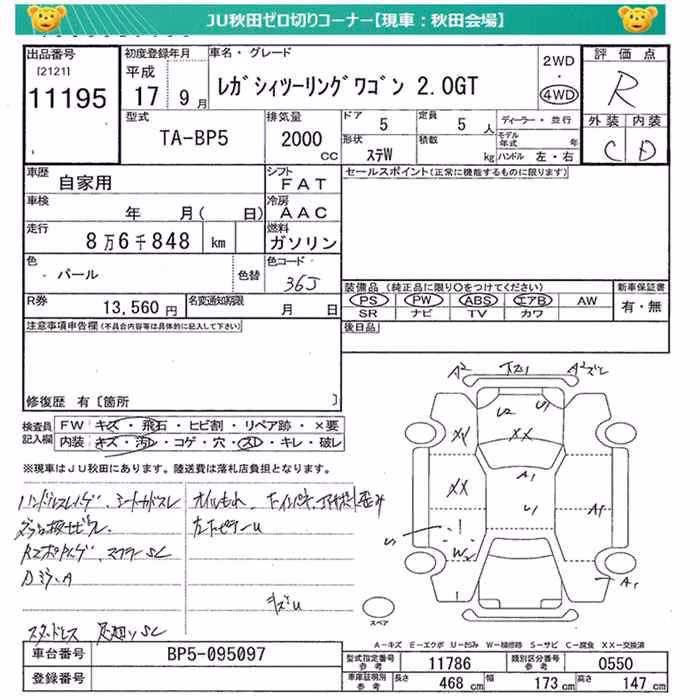 JU秋田ゼロ切りコーナー【現車：秋田会場】
出品番号
[2121]
11195
初度登録年月
平成
17 9月
車名・グレード
レガシィツーリングワゴン 2.0GT
2WD
・
4WD
評価点
R
外装 内装
C D
型式
TA-BP5
排気量
2000
CC
ドア
5
定員
5 人
ディーラー・並行
形状
ステW
積載
kg
モデル年式
年
ハンドル 左・右
車歴
自家用
シフト
FAT
車検
年 月( 日)
冷房
AAC
走行
8万6千848 km
燃料
ガソリン
色
パール
色替
色コード
36J
R券
13,560 円
名変通知期限
月 日
セールスポイント(正常に機能するものに限ります)
装備品 (純正品に限り○をつけてください)
PS PW ABS エアB AW
SR ナビ TV カワ
新車保証書
有・無
後日品
注意事項申告欄(不具合内容等は具体的に記入して下さい)
修復歴 有〔箇所 〕
検査員記入欄
FW キズ・飛石・ヒビ割・リペア跡・×要
内装 キズ・汚レ・コゲ・穴・スレ・キレ・破レ
※現車はJU秋田にあります。陸送費は落札店負担となります。
A2
A2
U2
U1
XX
XX
A1
XX
U1
A1
W2
A1
スペア
A-キズ E-エクボ U-凹み W-補修跡 S-サビ C-腐食 XX-交換済
車台番号
BP5-095097
登録番号
型式指定番号参考
11786
類別区分番号参考
0550
車庫証明別参考
長さ 468 cm
幅 173 cm
高さ 147 cm